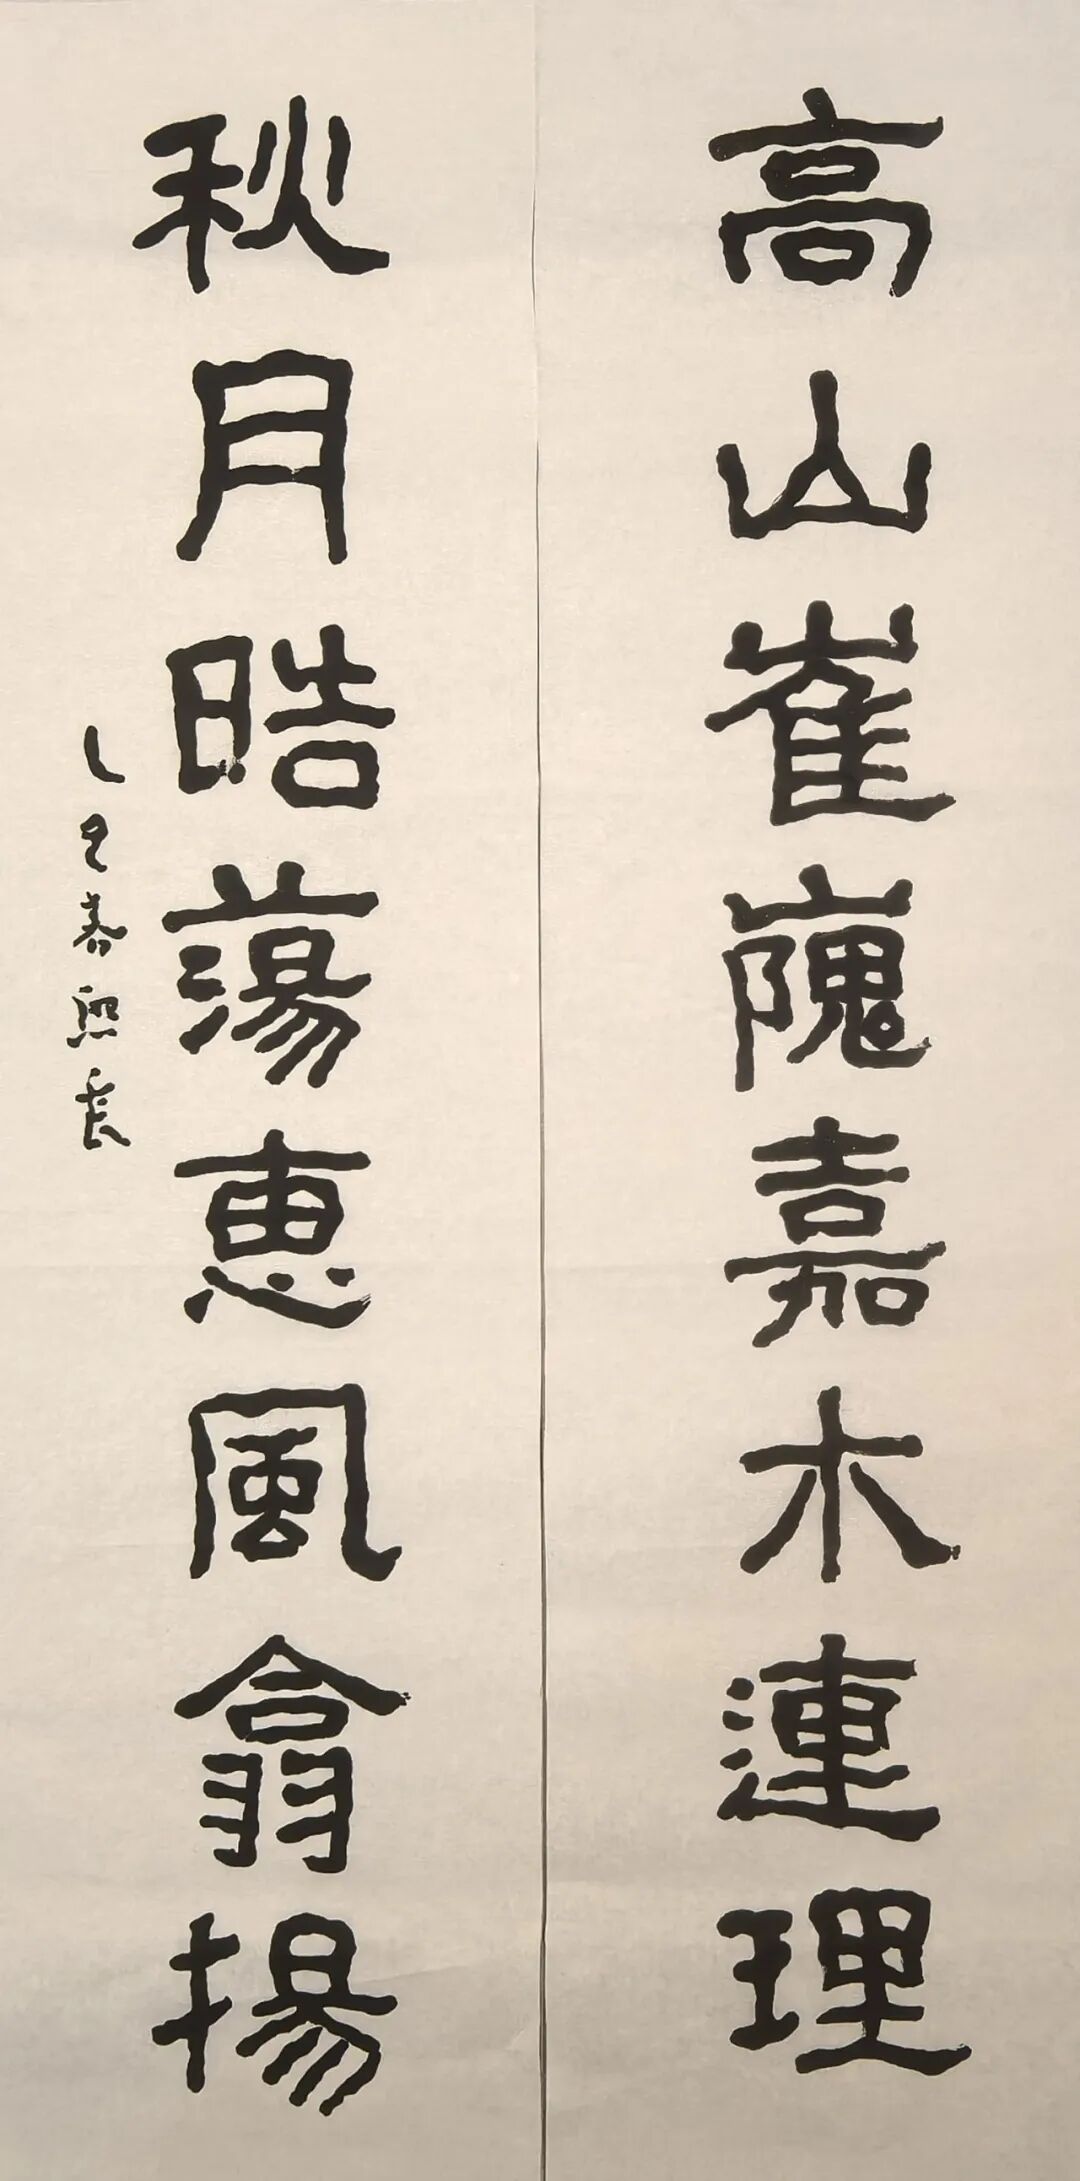 高山崔隗嘉木連理
秋月晧蕩惠風翕揚
乙巳春熙長